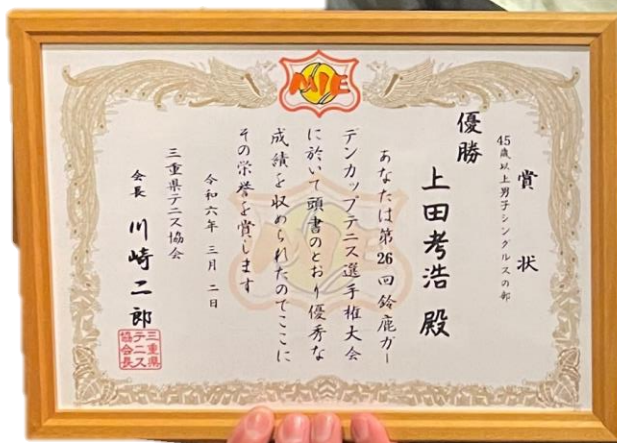 MIE
賞状
45歳以上男子シングルスの部
優勝
上田考浩殿
あなたは第26回鈴鹿ガー
デンカップテニス選手権大会
に於いて頭書のとおり優秀な
成績を収められたのでここに
その栄誉を賞します
令和六年三月二日
三重県テニス協会
会長 川崎二郎
三重県
テニス
協会長